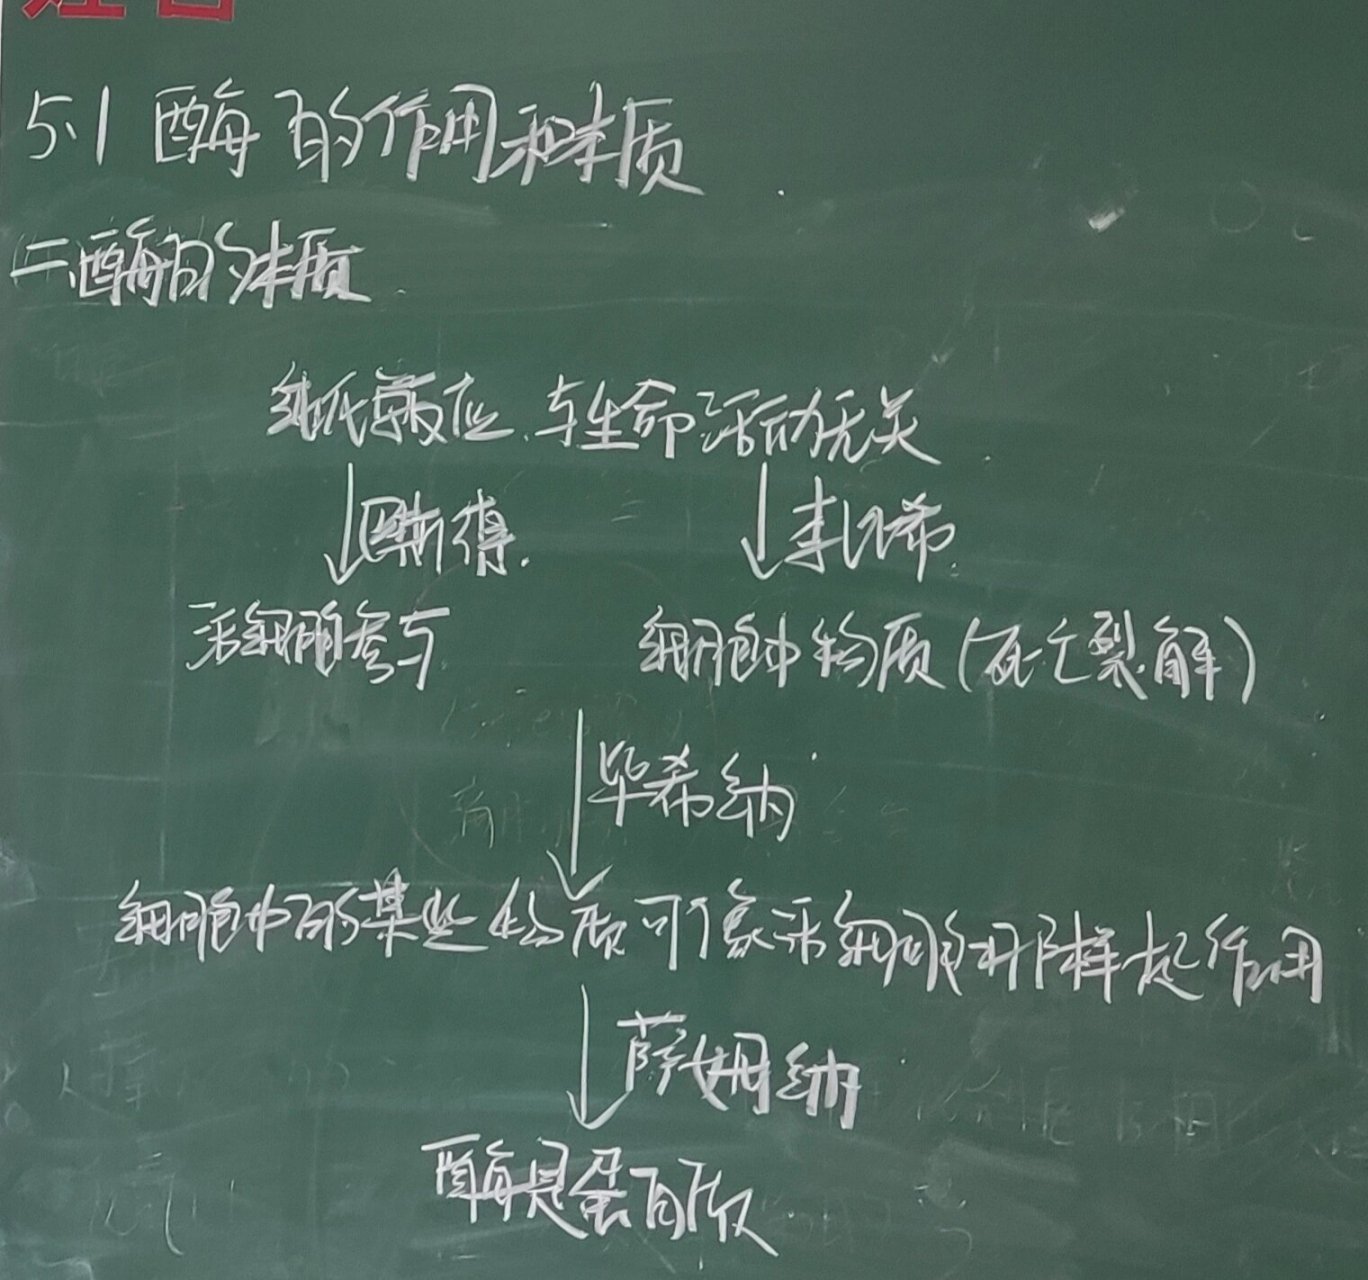 5.1 酶的作用和本质
二、酶的本质
纯化学反应、与生命活动无关
巴斯德
李比希
活细胞参与
细胞中物质(死亡裂解)
毕希纳
细胞中的某些物质可像活细胞那样起作用
萨姆纳
酶是蛋白质